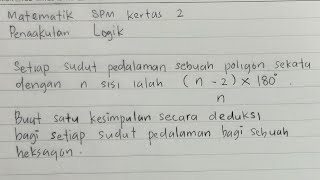 Matematik SPM kertas 2
Penaakulan Logik
Setiap sudut pedalaman sebuah poligon sekata
dengan n sisi ialah (n - 2) × 180°.
n
Buat satu kesimpulan secara deduksi
bagi setiap sudut pedalaman bagi sebuah
heksagon.